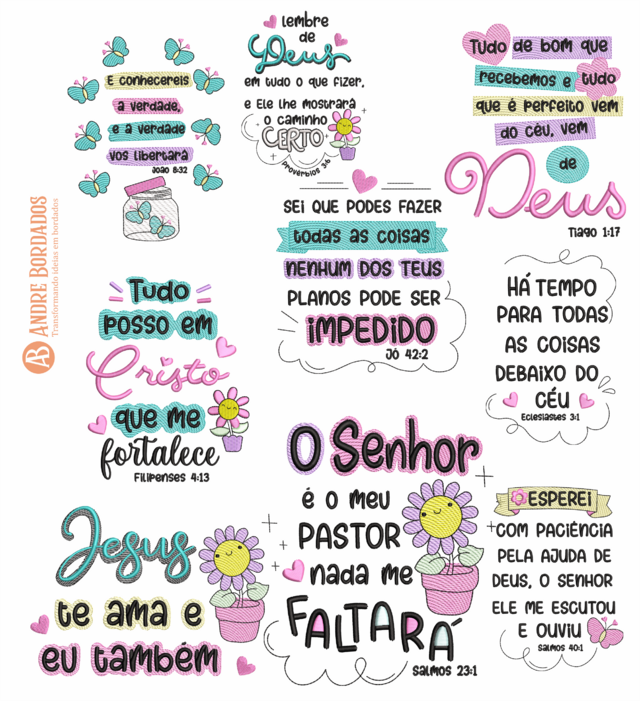 E CONHECEREIS
A VERDADE,
E A VERDADE
VOS LIBERTARÁ
JOÃO 8:32
lembre
de
Deus
em tudo o que fizer,
e Ele lhe mostrará
o caminho
CERTO
Provérbios 3:6
Tudo de bom que
recebemos e tudo
que é perfeito vem
do céu, vem
de
Deus
Tiago 1:17
SEI QUE PODES FAZER
todas as coisas
NENHUM DOS TEUS
PLANOS PODE SER
IMPEDIDO
JÓ 42:2
HÁ TEMPO
PARA TODAS
AS COISAS
DEBAIXO DO
CÉU
Eclesiastes 3:1
ANDRE BORDADOS
Transformando ideias em bordados
AB
Tudo
POSSO EM
Cristo
que me
fortalece
Filipenses 4:13
O Senhor
é o meu
PASTOR
nada me
FALTARÁ
SALMOS 23:1
ESPEREI
COM PACIÊNCIA
PELA AJUDA DE
DEUS, O SENHOR
ELE ME ESCUTOU
E OUVIU
SALMOS 40:1
Jesus
te ama e
eu também